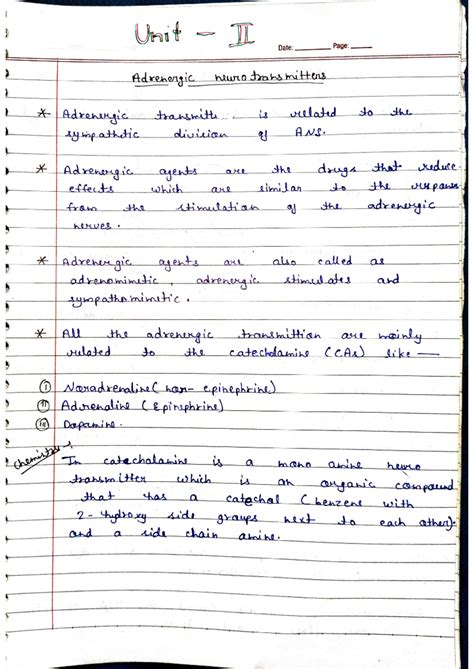 Unit - II
Date: Page:
Adrenergic neurotransmitters
* Adrenergic transmitt.. is related to the
sympathetic division of ANS.
* Adrenergic agents are the drugs that reduce
effects which are similar to the respons
from the stimulation of the adrenergic
nerves.
* Adrenergic agents are also called as
adrenomimetic, adrenergic stimulates and
sympathomimetic.
* All the adrenergic transmittion are mainly
related to the catecholamine (CAs) like —
(i) Noradrenaline (nor-epinephrine)
(ii) Adrenaline (Epinephrine)
(iii) Dopamine.
Chemistry
In catecholamine is a mono amine neuro
transmitter which is an organic compound
that has a catechol (benzene with
2-hydroxy side groups next to each other)
and a side chain amine.